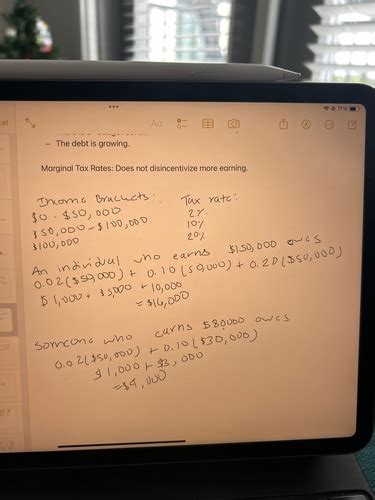 71%
Aa
- The debt is growing.
Marginal Tax Rates: Does not disincentivize more earning.
Income Brackets: Tax rate:
$0 - $50,000 2%
$50,000 - $100,000 10%
$100,000 20%
An individual who earns $150,000 owes
0.02($50,000) + 0.10(50,000) + 0.20($50,000)
$1,000 + $5,000 + 10,000
= $16,000
Someone who earns $80,000 owes
0.02($50,000) + 0.10($30,000)
$1,000 + $3,000
= $4,000